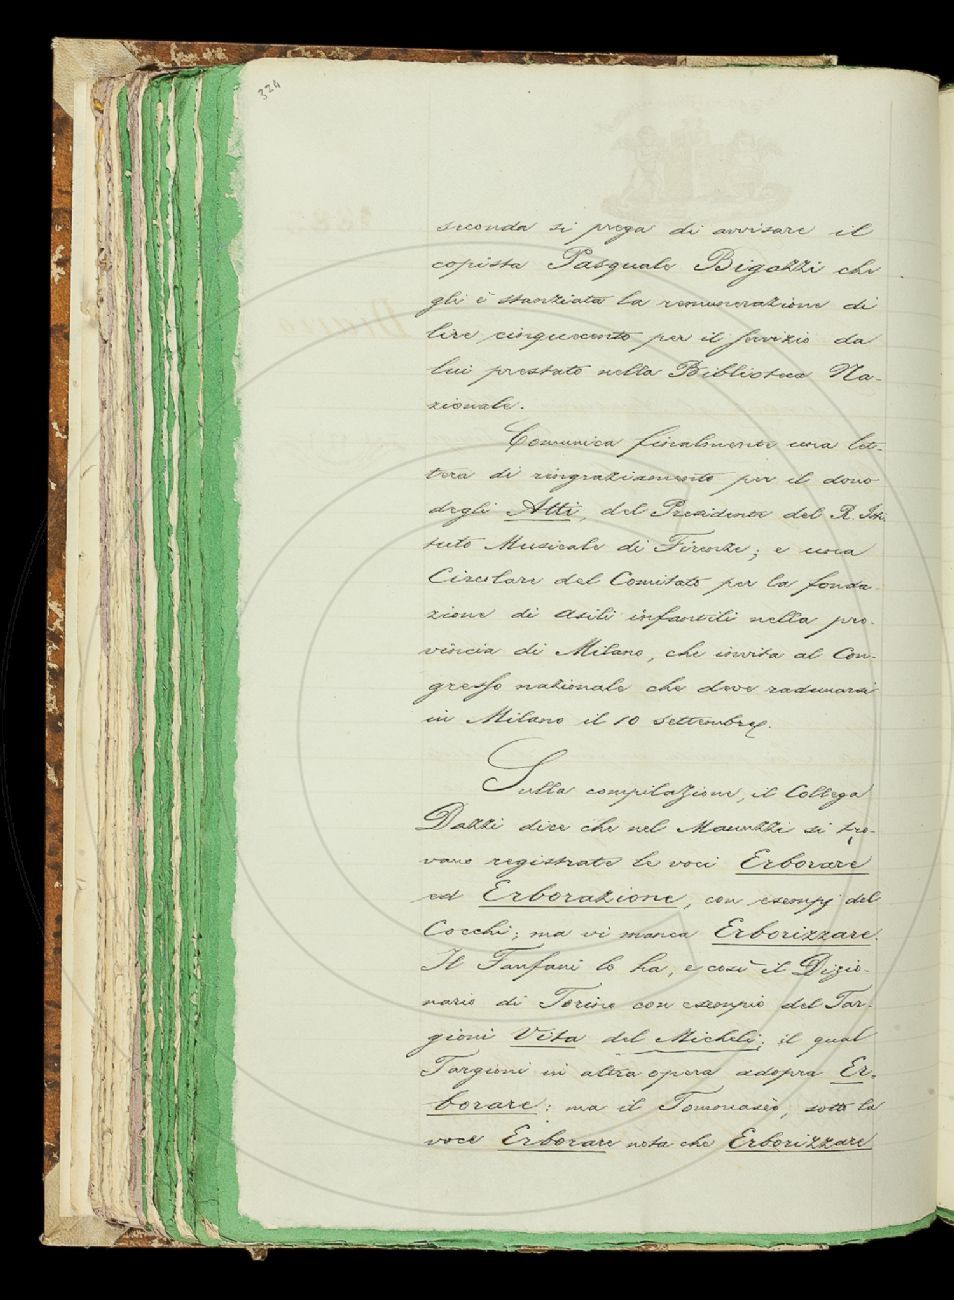 324
seconda si prega di avvisare il
copista Pasquale Bigazzi che
gli è stanziata la remunerazione di
lire cinquecento per il servizio da
lui prestato nella Biblioteca Na-
zionale.
Comunica finalmente una let-
tera di ringraziamento per il dono
degli Atti, del Presidente del R. Isti-
tuto Musicale di Firenze; e una
Circolare del Comitato per la fonda-
zione di asili infantili nella pro-
vincia di Milano, che invita al Con-
gresso nazionale che deve radunarsi
in Milano il 10 settembre.
Sulla compilazione, il Collega
Dazzi dice che nel Manuzzi si tro-
vano registrate le voci Erborare
ed Erborazione, con esempj del
Cocchi; ma vi manca Erborizzare.
Il Fanfani lo ha, e così il Dizio-
nario di Torino con esempio del Tar-
gioni Vita del Micheli; il qual
Targioni in altra opera adopra Er-
borare: ma il Tommasèo, sotto la
voce Erborare nota che Erborizzare